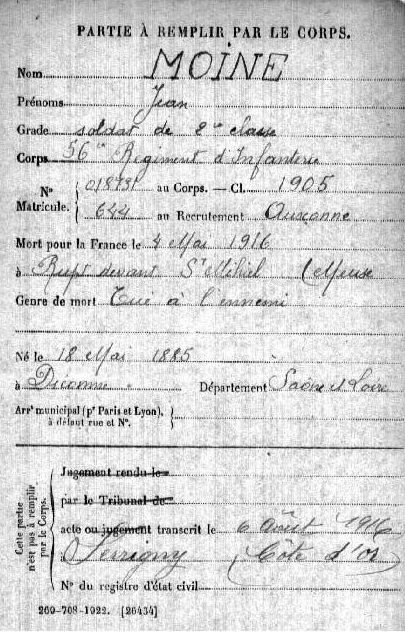 PARTIE À REMPLIR PAR LE CORPS.
Nom MOINE
Prénoms Jean
Grade soldat de 2e classe
Corps 56e Régiment d'Infanterie
N° 018731 au Corps. — Cl. 1905
Matricule. 644 au Recrutement Auxonne
Mort pour la France le 4 Mai 1916
à Rupt devant St Mihiel (Meuse
Genre de mort Tué à l'ennemi
Né le 18 Mai 1885
à Diconne Département Saône et Loire
Arrt municipal (pr Paris et Lyon),
à défaut rue et N°.
Cette partie n'est pas à remplir par le Corps.
Jugement rendu le
par le Tribunal de
acte ou jugement transcrit le 6 Août 1916
Perrigny (Côte d'Or
N° du registre d'état civil
260-708-1922. [26434]